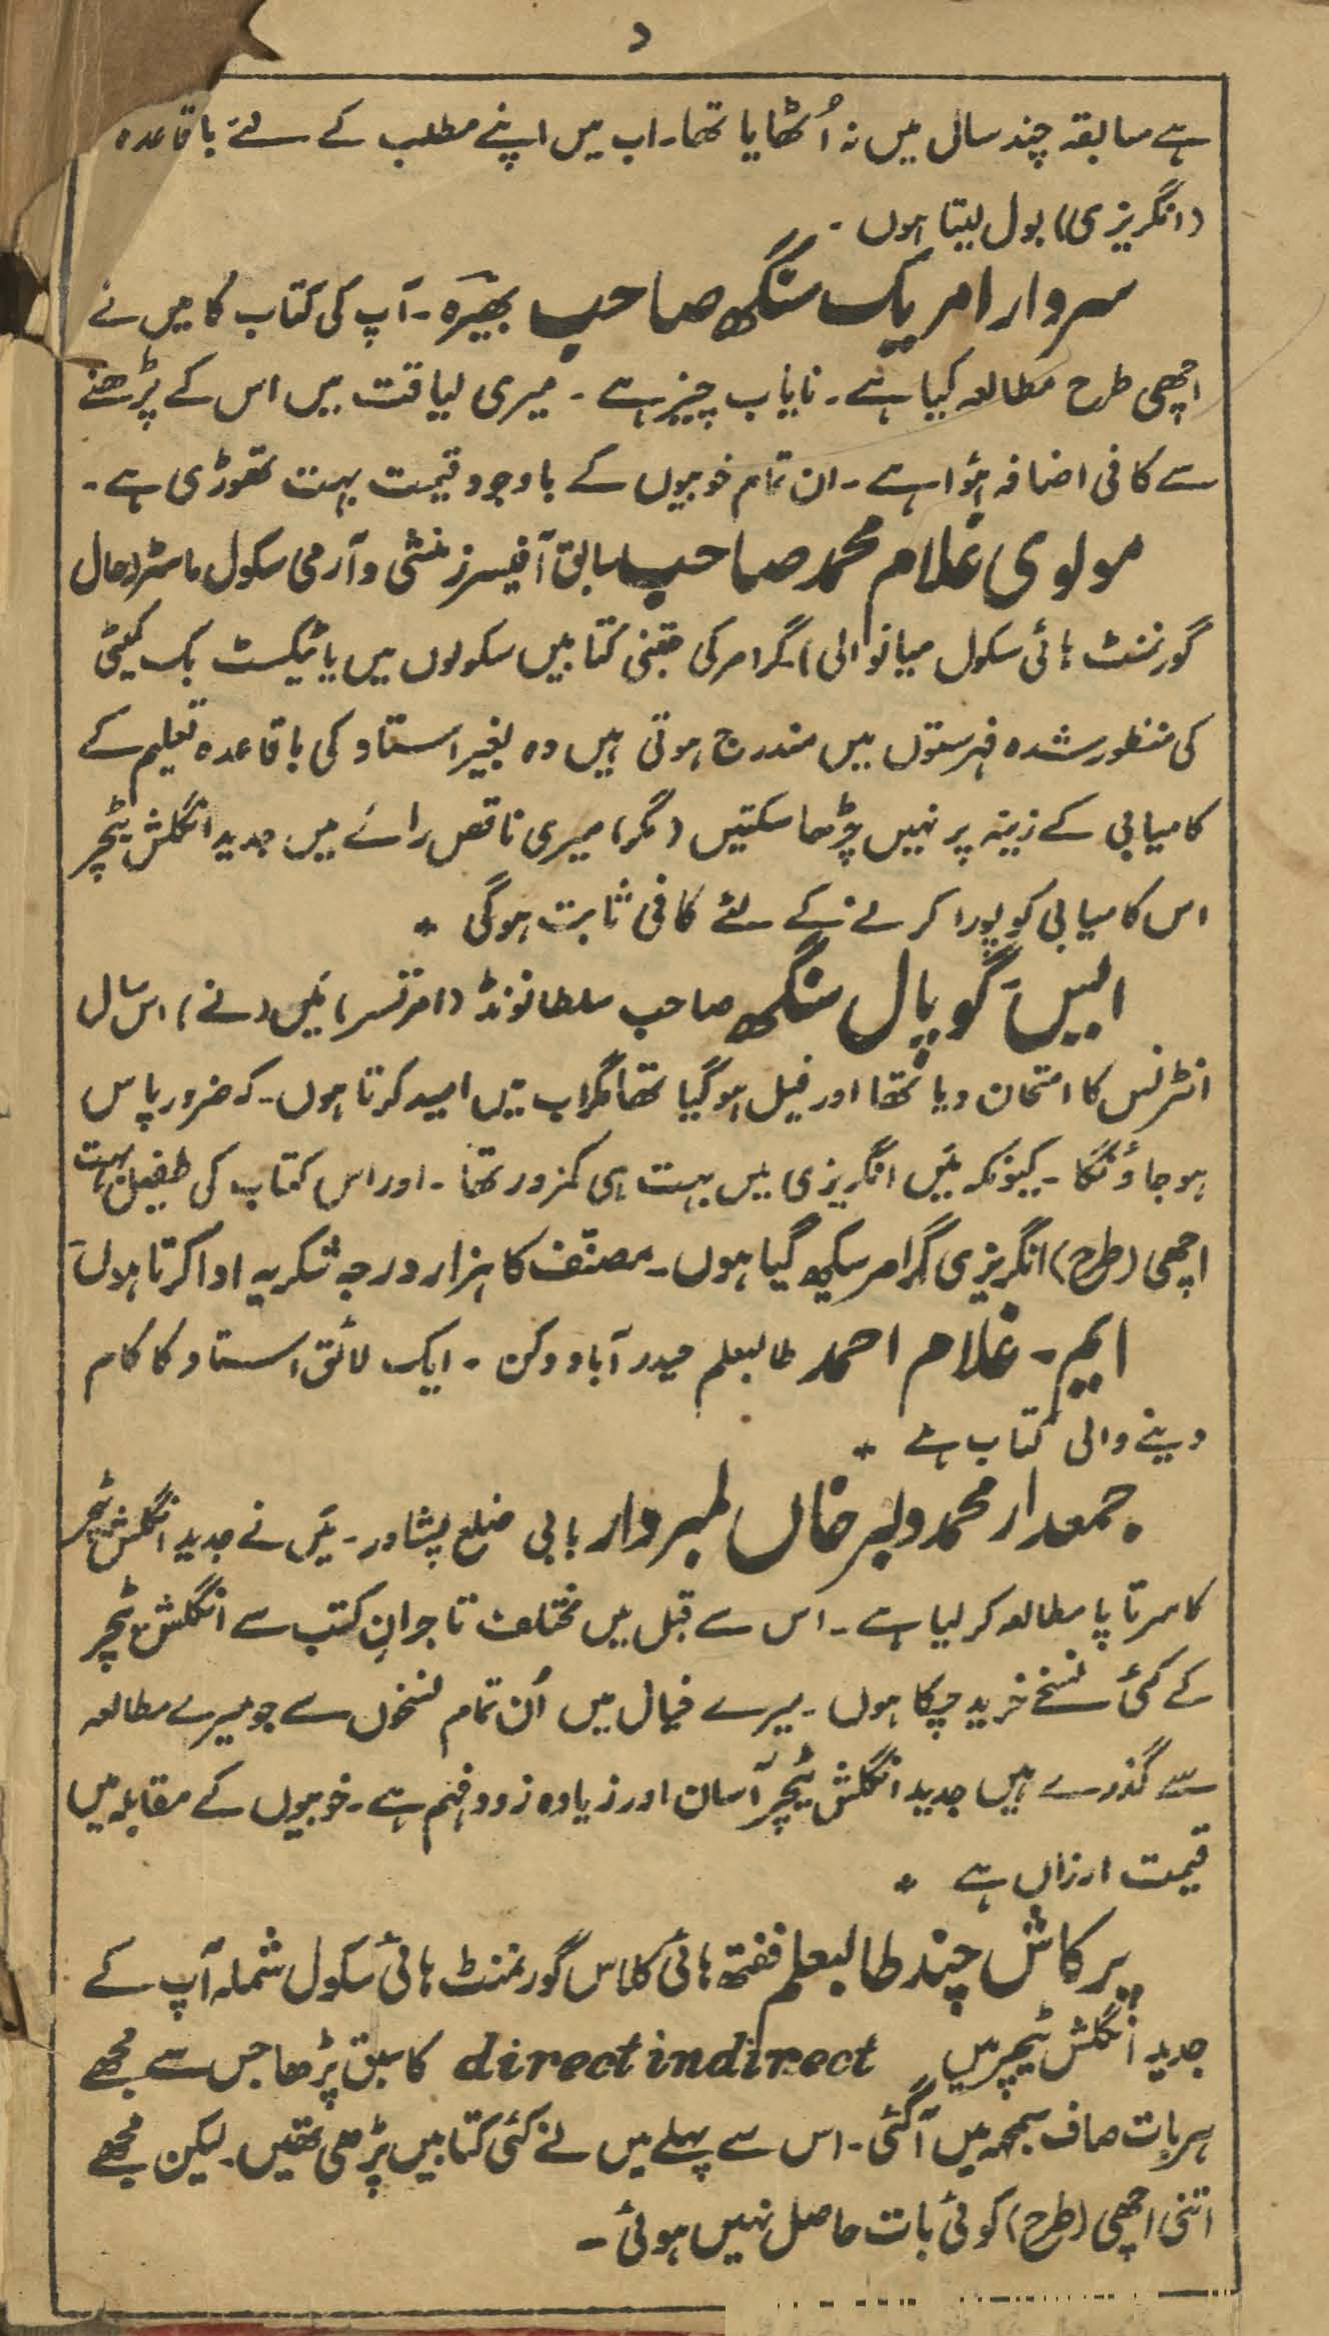 د
ہے سابقہ چند سال میں نہ اُٹھایا تھا۔ اب میں اپنے مطلب کے لئے باقاعدہ
(انگریزی) بول لیتا ہوں۔
سردار امریک سنگھ صاحب بھیرہ۔ آپ کی کتاب کا میں نے
اچھی طرح مطالعہ کیا ہے۔ نایاب چیز ہے۔ میری لیاقت میں اس کے پڑھنے
سے کافی اضافہ ہؤا ہے۔ ان تمام خوبیوں کے باوجود قیمت بہت تھوڑی ہے۔
مولوی غلام محمد صاحب سابق آفیسرز منشی و آرمی سکول ماسٹر (حال
گورنمنٹ ہائی سکول میانوالی) گرامر کی جتنی کتابیں سکولوں میں یا ٹیکسٹ بک کمیٹی
کی منظور شدہ فہرستوں میں مندرج ہوتی ہیں وہ بغیر استاد کی باقاعدہ تعلیم کے
کامیابی کے زینہ پر نہیں چڑھا سکتیں (مگر) میری ناقص رائے میں جدید انگلش ٹیچر
اس کامیابی کو پورا کرنے کے لئے کافی ثابت ہوگی *
ایس گوپال سنگھ صاحب سلطانونڈ (امرتسر) مَیں (نے) اس سال
انٹرنس کا امتحان دیا تھا اور فیل ہو گیا تھا مگر اب میں امید کرتا ہوں۔ کہ ضرور پاس
ہو جاؤنگا۔ کیونکہ مَیں انگریزی میں بہت ہی کمزور تھا۔ اور اس کتاب کی طفیل بہت
اچھی (طرح) انگریزی گرامر سیکھ گیا ہوں۔ مصنّف کا ہزار درجہ شکریہ ادا کرتا ہوں
ایم۔ غلام احمد طالبعلم حیدر آباد دکن۔ ایک لائق استاد کا کام
دینے والی کتاب ہے *
جمعدار محمد دلبر خاں لمبردار بابی ضلع پشاور۔ مَیں نے جدید انگلش ٹیچر
کا سرتاپا مطالعہ کر لیا ہے۔ اس سے قبل میں مختلف تاجرانِ کتب سے انگلش ٹیچر
کے کئی نسخے خرید چکا ہوں۔ میرے خیال میں اُن تمام نسخوں سے جو میرے مطالعہ
سے گذرے ہیں جدید انگلش ٹیچر آسان اور زیادہ زود فہم ہے۔ خوبیوں کے مقابلہ میں
قیمت ارزاں ہے *
پرکاش چند طالبعلم ففتھ ہائی کلاس گورنمنٹ ہائی سکول شملہ آپ کے
جدید انگلش ٹیچر میں direct indirect کا سبق پڑھا جس سے مجھے
ہر بات صاف سمجھ میں آ گئی۔ اس سے پہلے میں نے کئی کتابیں پڑھی تھیں۔ لیکن مجھے
اتنی اچھی (طرح) کوئی بات حاصل نہیں ہوئی۔